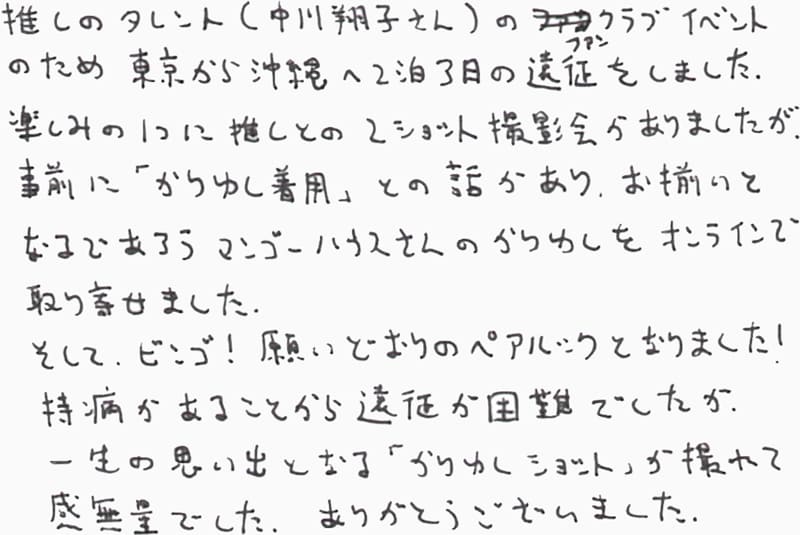 推しのタレント(中川翔子さん)のファンクラブイベント
のため東京から沖縄へ2泊3日の遠征をしました.
楽しみの1つに推しとの2ショット撮影会がありましたが.
事前に「かりゆし着用」との話があり.お揃いと
なるであろうマンゴーハウスさんのかりゆしをオンラインで
取り寄せました.
そして.ビンゴ!願いどおりのペアルックとなりました!
持病があることから遠征が困難でしたが.
一生の思い出となる「かりゆしショット」が撮れて
感無量でした.ありがとうございました.